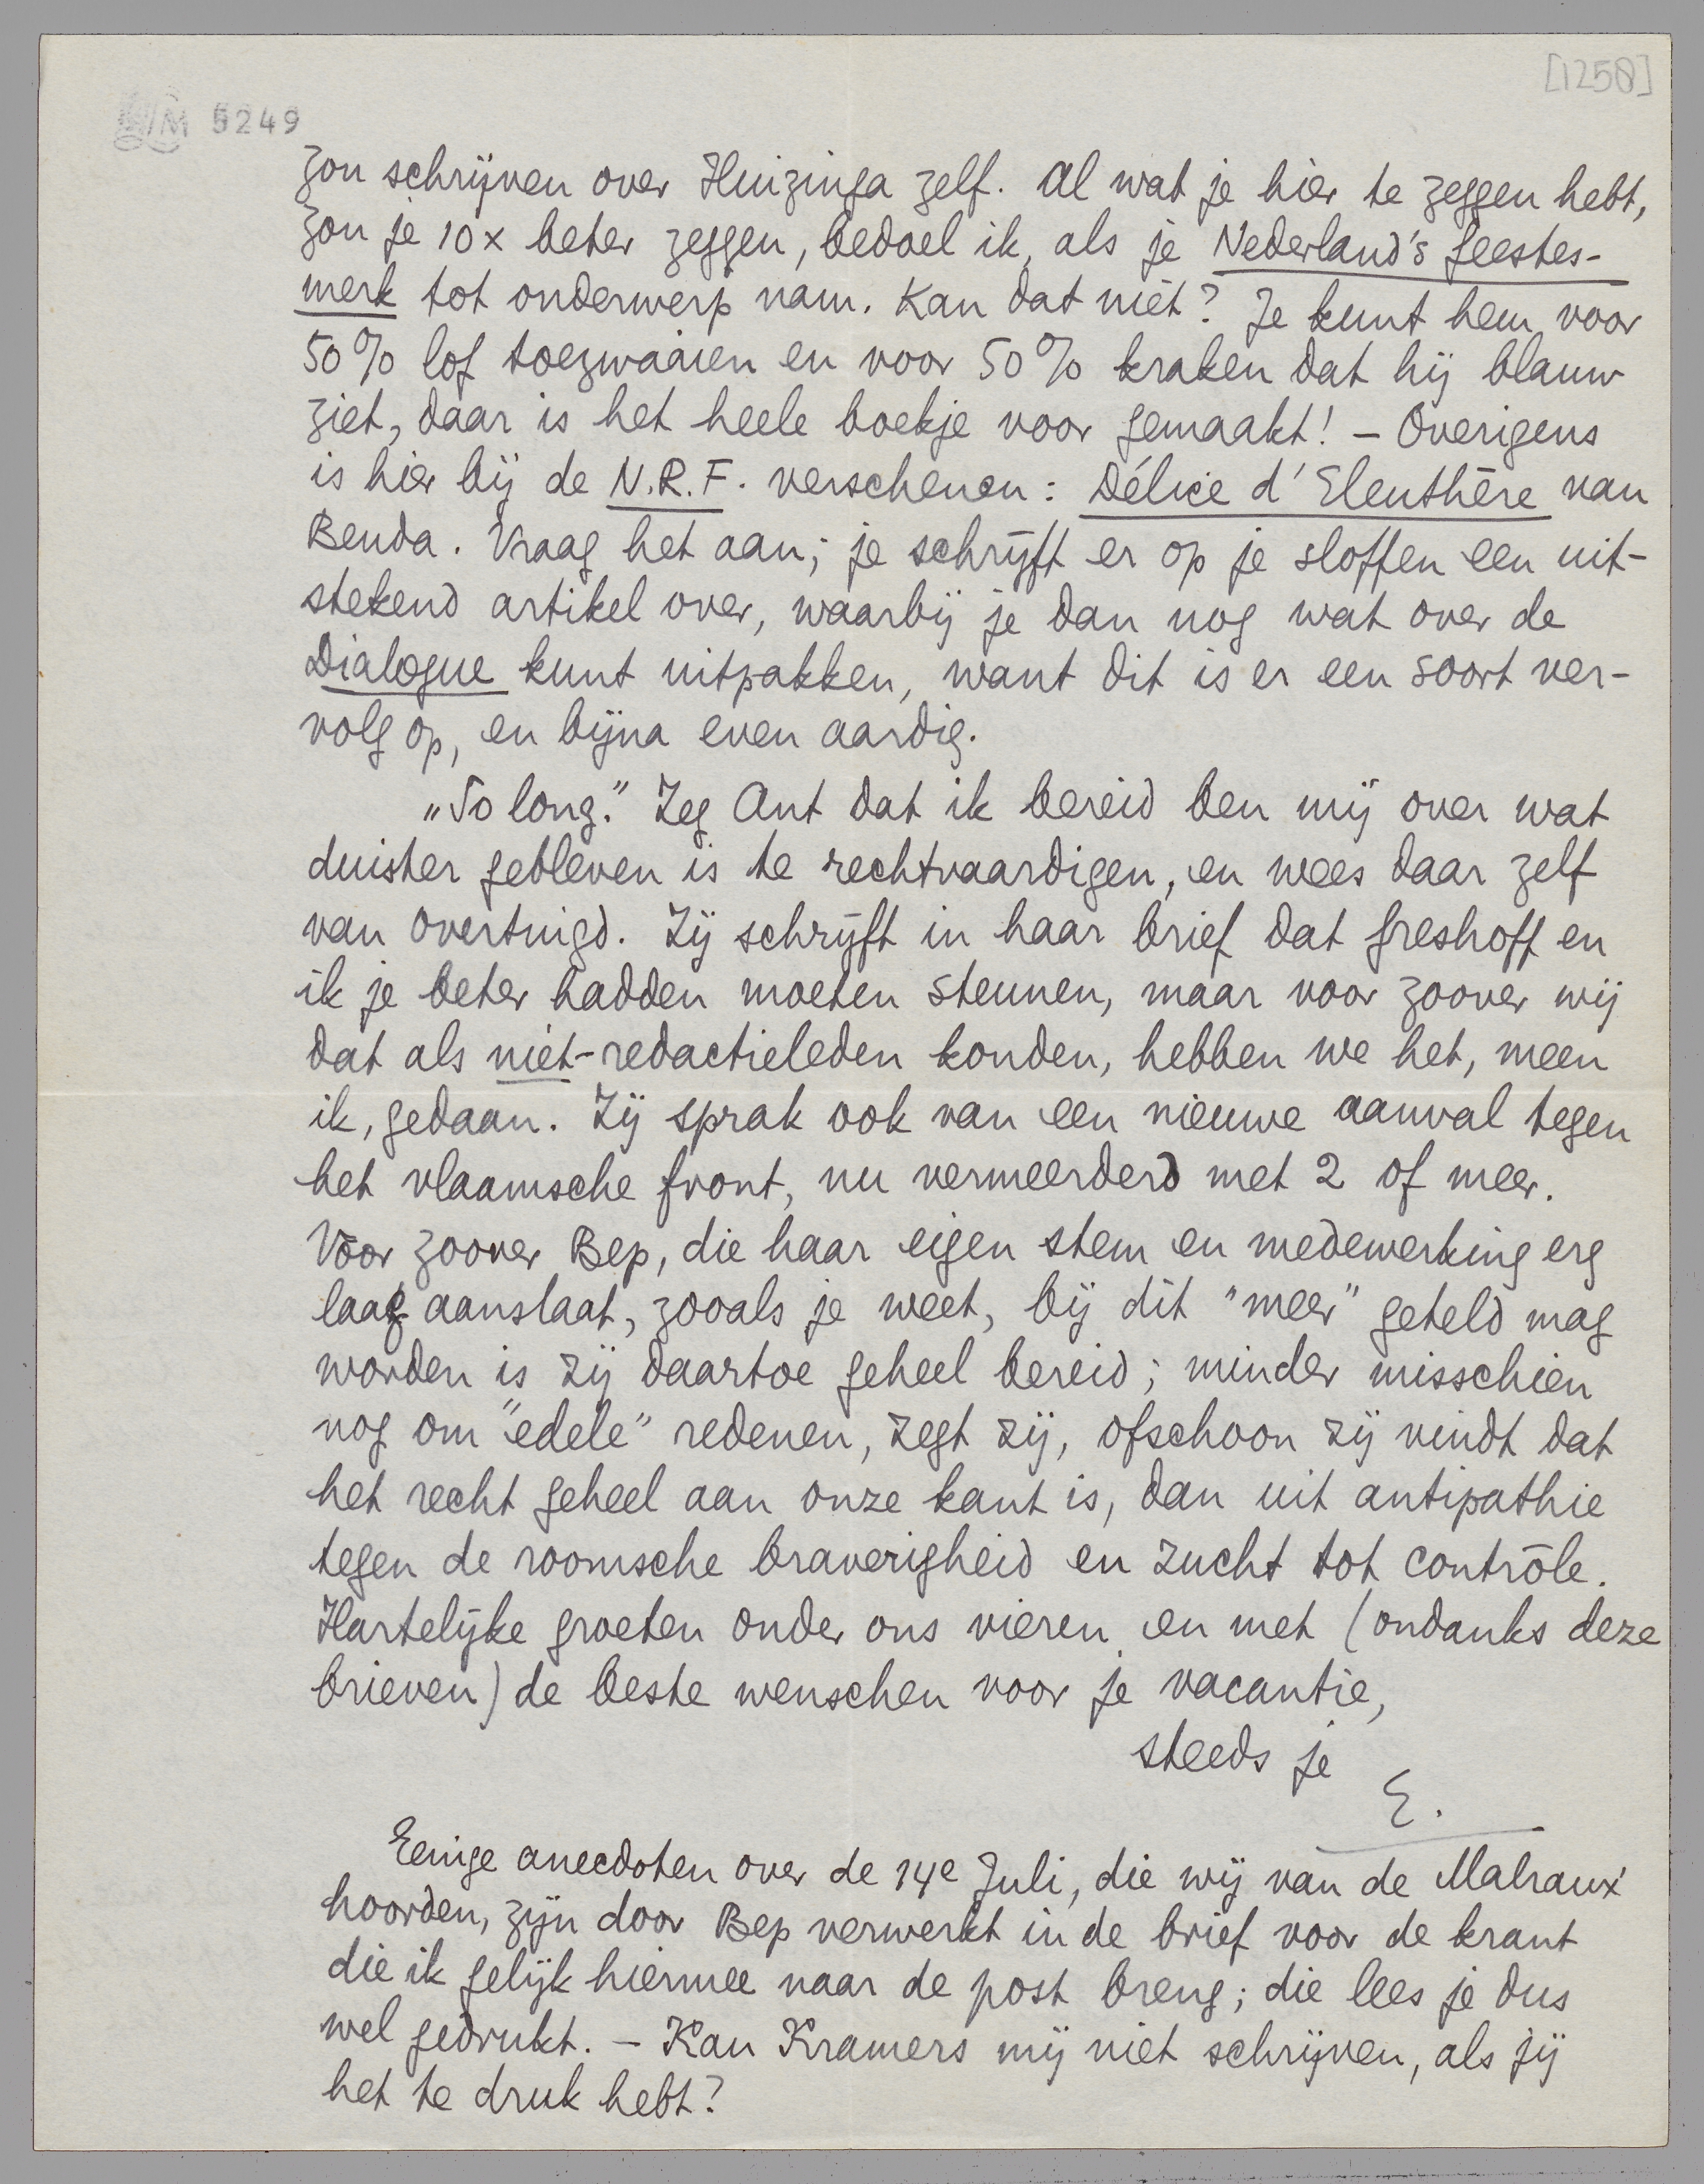 [1258]
5249
zou schrijven over Huizinga zelf. Al wat je hier te zeggen hebt,
zou je 10x beter zeggen, bedoel ik, als je Nederland's geestes-
merk tot onderwerp nam. Kan dat niet? Je kunt hem voor
50% lof toezwaaien en voor 50% kraken dat hij blauw
ziet, daar is het heele boekje voor gemaakt! – Overigens
is hier bij de N.R.F. verschenen: Délice d'Eleuthère van
Benda. Vraag het aan; je schrijft er op je sloffen een uit-
stekend artikel over, waarbij je dan nog wat over de
Dialogue kunt uitpakken, want dit is er een soort ver-
volg op, en bijna even aardig.
„So long." Zeg Ant dat ik bereid ben mij over wat
duister gebleven is te rechtvaardigen, en wees daar zelf
van overtuigd. Zij schrijft in haar brief dat Greshoff en
ik je beter hadden moeten steunen, maar voor zoover wij
dat als niet-redactieleden konden, hebben we het, meen
ik, gedaan. Zij sprak ook van een nieuwe aanval tegen
het vlaamsche front, nu vermeerderd met 2 of meer.
Voor zoover Bep, die haar eigen stem en medewerking erg
laag aanslaat, zooals je weet, bij dit "meer" geteld mag
worden is zij daartoe geheel bereid; minder misschien
nog om "edele" redenen, zegt zij, ofschoon zij vindt dat
het recht geheel aan onze kant is, dan uit antipathie
tegen de roomsche braverigheid en zucht tot contrôle.
Hartelijke groeten onder ons vieren en met (ondanks deze
brieven) de beste wenschen voor je vacantie,
steeds je
E.
Eenige anecdoten over de 14e Juli, die wij van de Malraux'
hoorden, zijn door Bep verwerkt in de brief voor de krant
die ik gelijk hiermee naar de post breng; die lees je dus
wel gedrukt. – Kan Kramers mij niet schrijven, als jij
het te druk hebt?